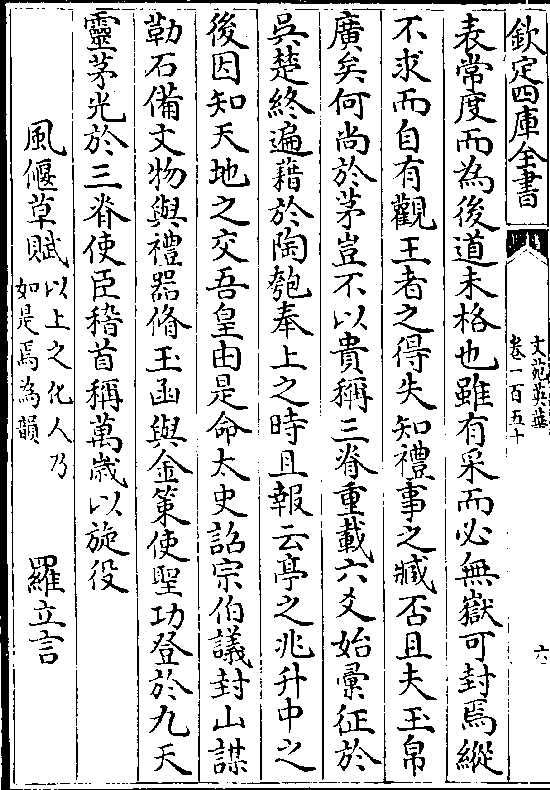 欽定四庫全書
文苑英華
卷一百五十
六
表常度而為後道未格也雖有采而必無嶽可封焉縱
不求而自有觀王者之得失知禮事之臧否且夫玉帛
廣矣何尚於茅豈不以貴稱三脊重載六爻始彚征於
吳楚終遍藉於陶匏奉上之時且報云亭之兆升中之
後因知天地之交吾皇由是命太史詔宗伯議封山謀
勒石備文物與禮器脩玉函與金策使聖功登於九天
靈茅光於三脊使臣稽首稱萬歲以旋役
風偃草賦以上之化人乃
如是焉為韻
羅立言